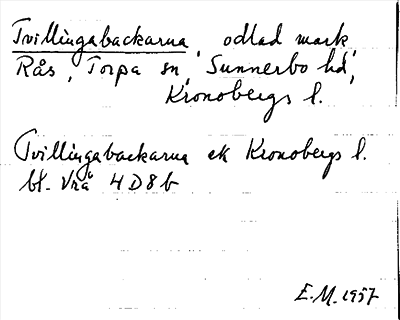 Tvillingabackarna, odlad mark,
Rås, Torpa sn, Sunnerbo hd,
Kronobergs l.
Tvillingabackarna ek Kronobergs l.
bl. Vrå 4D8b
E.M. 1957